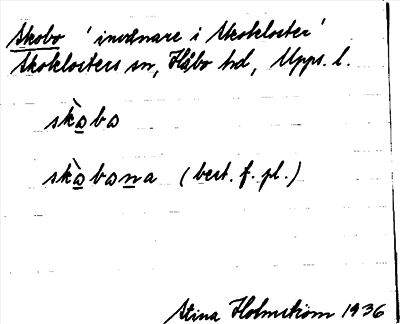 Skobo 'invånare i Skokloster'
Skoklosters sn, Håbo hd, Upps. l.
skòbo
skòbona (best. f. pl.)
Stina Holmström 1936